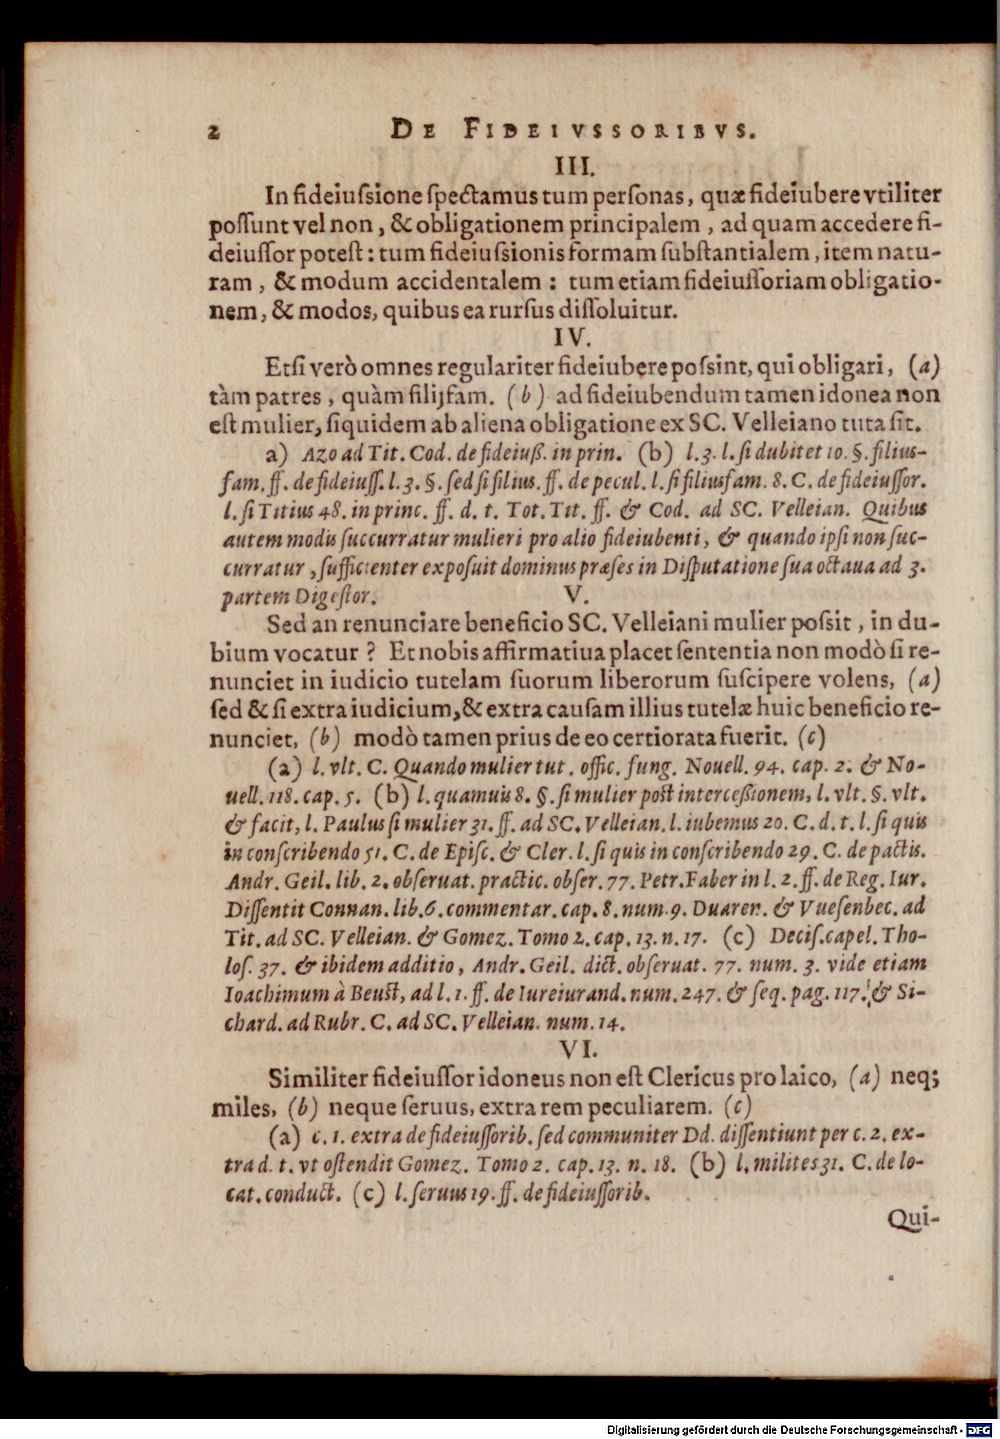 2 DE FIDEIVSSORIBVS.
III.
In fideiuſsione ſpectamus tum perſonas, quæ fideiubere vtiliter
poſſunt vel non, & obligationem principalem, ad quam accedere fi-
deiuſſor poteſt: tum fideiuſsionis formam ſubſtantialem, item natu-
ram, & modum accidentalem: tum etiam fideiuſſoriam obligatio-
nem, & modos, quibus ea rurſus diſſoluitur.
IV.
Etſi verò omnes regulariter fideiubere poſsint, qui obligari, (a)
tàm patres, quàm filijfam. (b) ad fideiubendum tamen idonea non
eſt mulier, ſiquidem ab aliena obligatione ex SC. Velleiano tuta ſit.
a) Azo ad Tit. Cod. de fideiuß. in prin. (b) l. 3. l. ſi dubitet 10. §. filius-
fam. ff. de fideiuſſ. l. 3. §. ſed ſi filius. ff. de pecul. l. ſi filiusfam. 8. C. de fideiuſſor.
l. ſi Titius 48. in princ. ff. d. t. Tot. Tit. ff. & Cod. ad SC. Velleian. Quibus
autem modis ſuccurratur mulieri pro alio fideiubenti, & quando ipſi non ſuc-
curratur, ſufficienter expoſuit dominus præſes in Diſputatione ſua octaua ad 3.
partem Digeſtor.
V.
Sed an renunciare beneficio SC. Velleiani mulier poſsit, in du-
bium vocatur? Et nobis affirmatiua placet ſententia non modò ſi re-
nunciet in iudicio tutelam ſuorum liberorum ſuſcipere volens, (a)
ſed & ſi extra iudicium, & extra cauſam illius tutelæ huic beneficio re-
nunciet, (b) modò tamen prius de eo certiorata fuerit. (c)
(a) l. vlt. C. Quando mulier tut. offic. fung. Nouell. 94. cap. 2. & No-
uell. 118. cap. 5. (b) l. quamuis 8. §. ſi mulier poſt interceßionem, l. vlt. §. vlt.
& facit, l. Paulus ſi mulier 31. ff. ad SC. Velleian. l. iubemus 20. C. d. t. l. ſi quis
in conſcribendo 51. C. de Epiſc. & Cler. l. ſi quis in conſcribendo 29. C. de pactis.
Andr. Geil. lib. 2. obſeruat. practic. obſer. 77. Petr. Faber in l. 2. ff. de Reg. Iur.
Diſſentit Connan. lib. 6. commentar. cap. 8. num. 9. Duaren. & Vueſenbec. ad
Tit. ad SC. Velleian. & Gomez. Tomo 2. cap. 13. n. 17. (c) Deciſ. capel. Tho-
loſ. 37. & ibidem additio, Andr. Geil. dict. obſeruat. 77. num. 3. vide etiam
Ioachimum à Beuſt, ad l. 1. ff. de Iureiurand. num. 247. & ſeq. pag. 117. & Si-
chard. ad Rubr. C. ad SC. Velleian. num. 14.
VI.
Similiter fideiuſſor idoneus non eſt Clericus pro laico, (a) neq;
miles, (b) neque ſeruus, extra rem peculiarem. (c)
(a) c. 1. extra de fideiuſſorib. ſed communiter Dd. diſſentiunt per c. 2. ex-
tra d. t. vt oſtendit Gomez. Tomo 2. cap. 13. n. 18. (b) l. milites 31. C. de lo-
cat. conduct. (c) l. ſeruus 19. ff. de fideiuſſorib.
Qui-
Digitalisierung gefördert durch die Deutsche Forschungsgemeinschaft - DFG